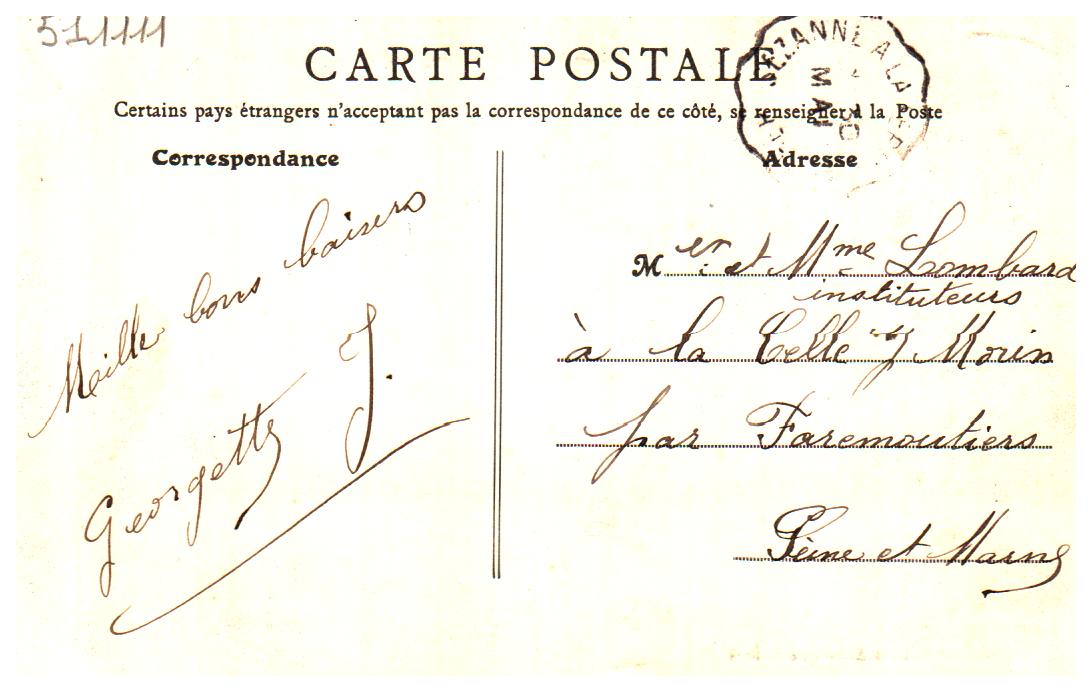 511111
CARTE POSTALE
Certains pays étrangers n'acceptant pas la correspondance de ce côté, se renseigner à la Poste
SEZANNE A LA
30
MAI
Correspondance
Adresse
Mille bons baisers
Georgette J.
M er et Mme Lombard
instituteurs
à la Celle s/ Morin
par Faremoutiers
Seine et Marne